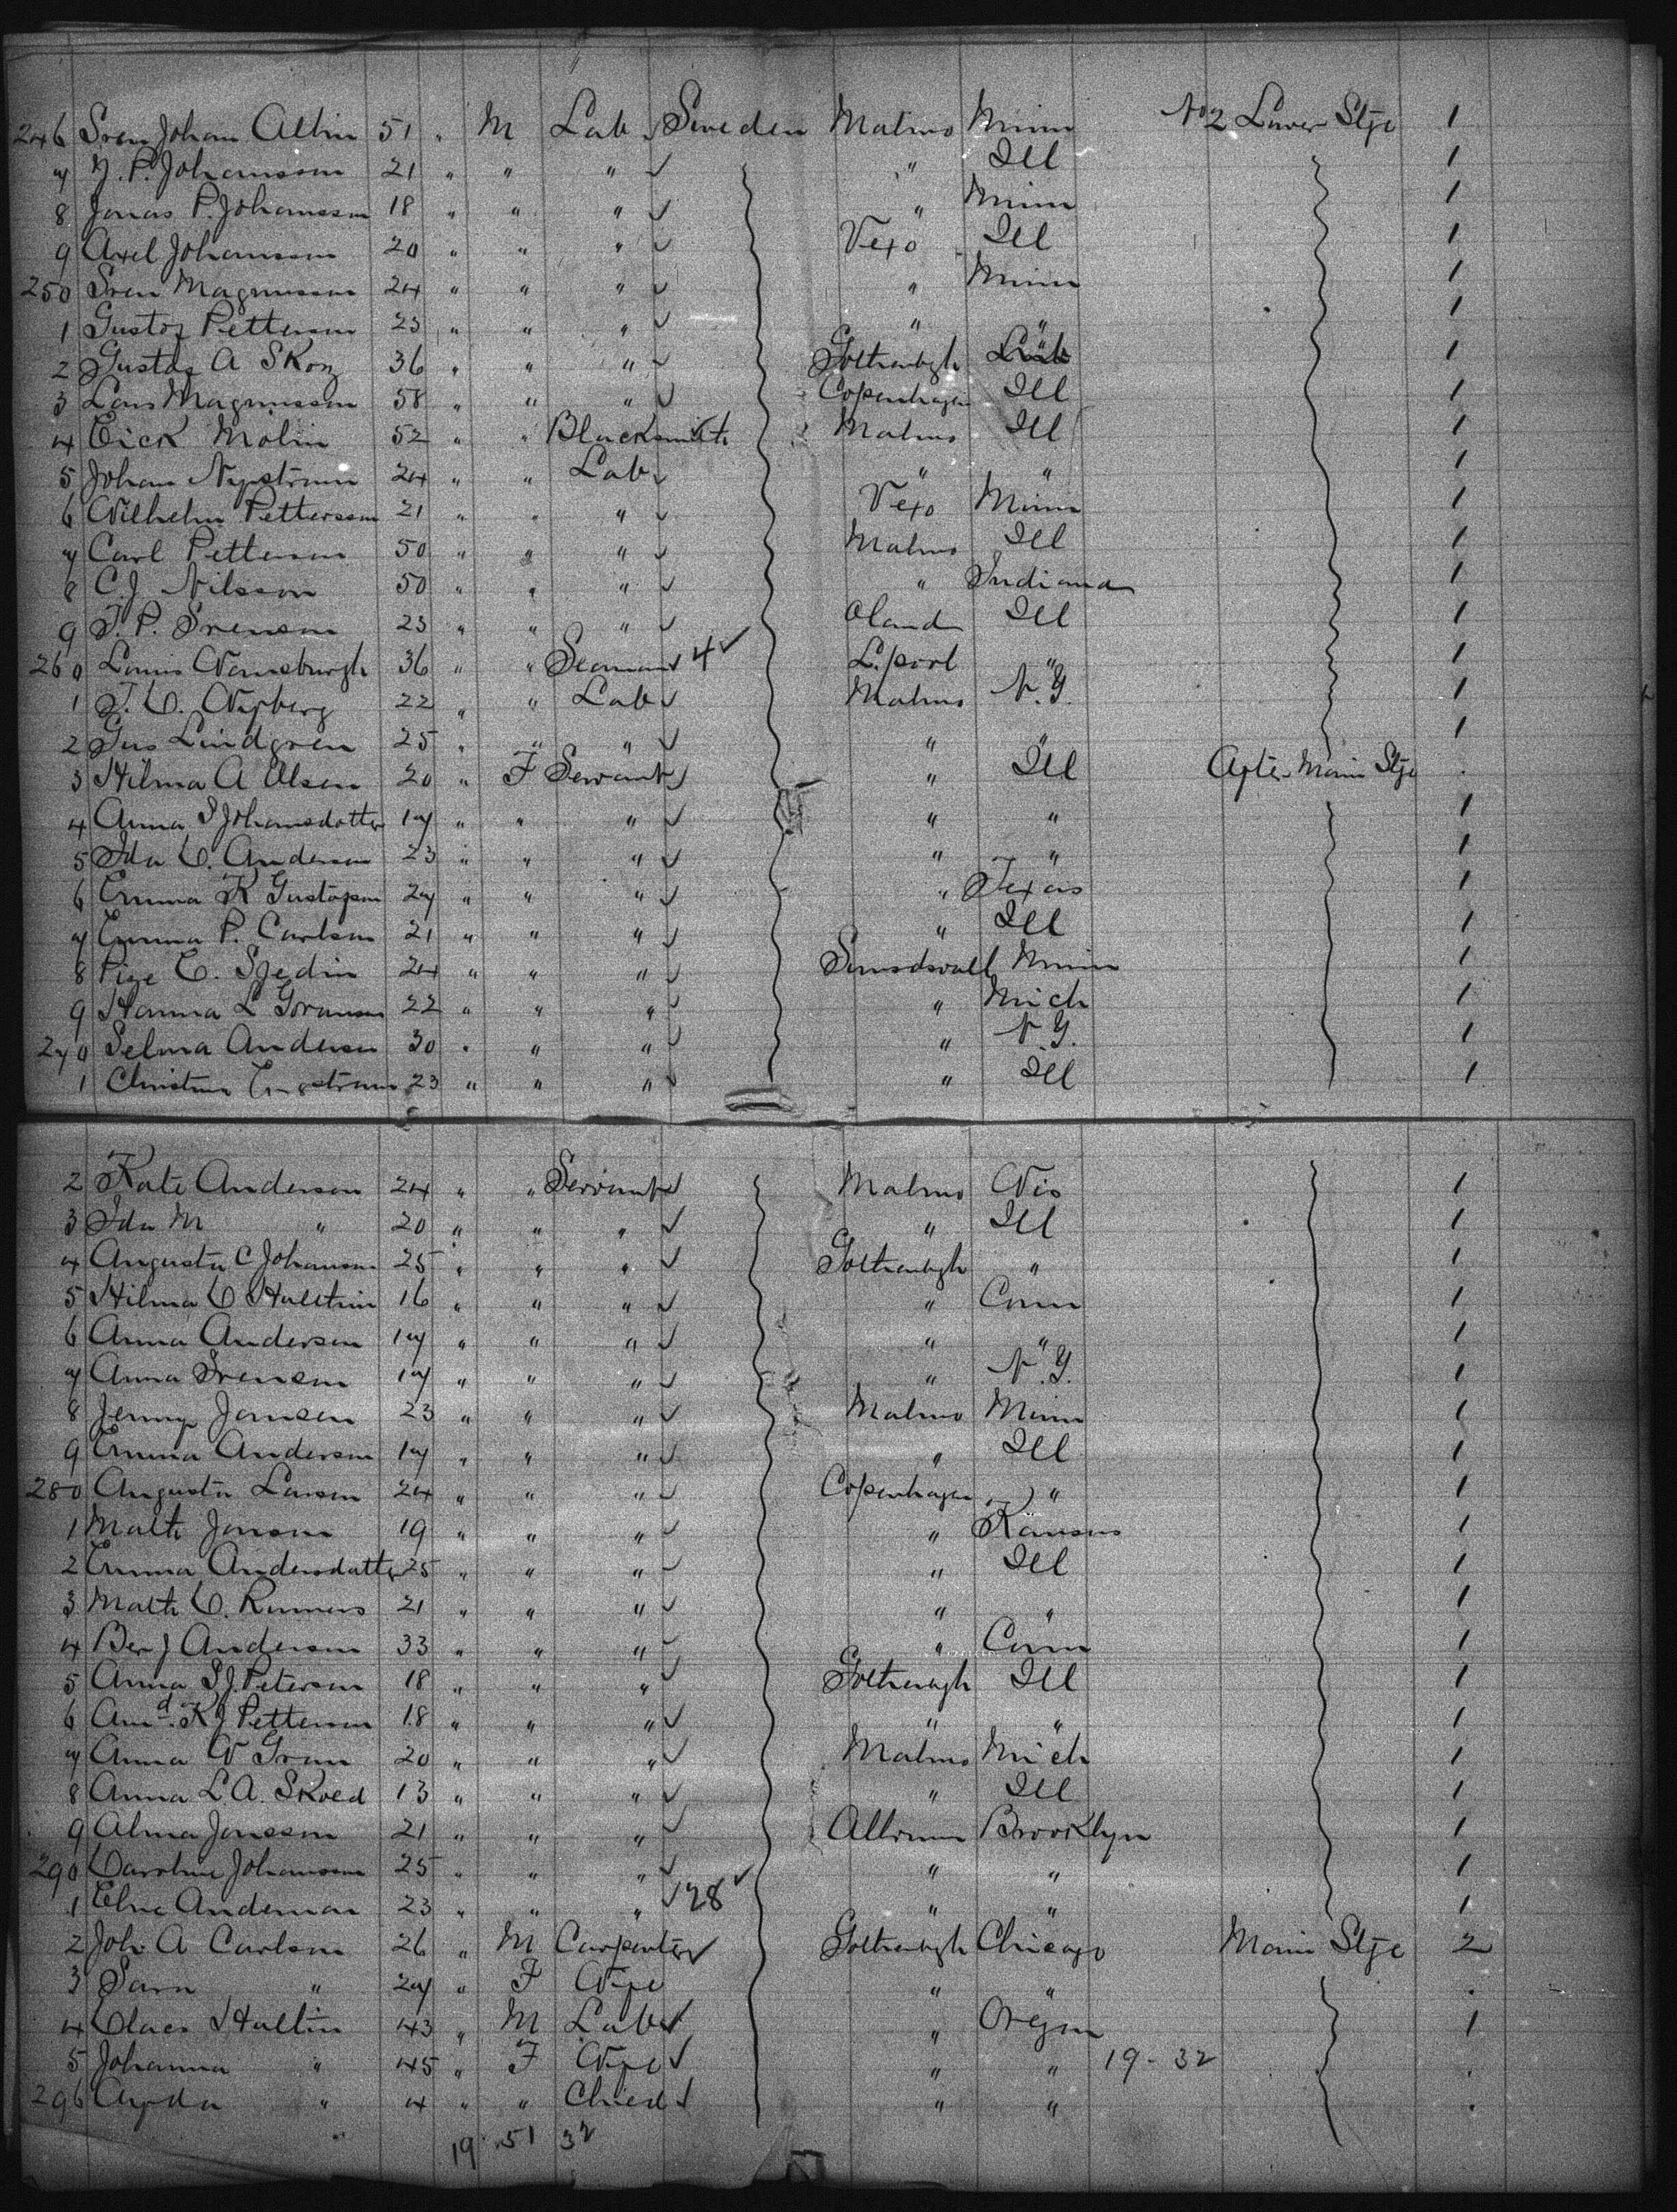 246 Sven Johan Allin 51 " M Lab Sweden Malmo Minn No 2 Lower Stge 1
7 N. P. Johansson 21 " " " " Ill 1
8 Jonas P. Johansson 18 " " " " Minn 1
9 Axel Johansson 20 " " " Vexo Ill 1
250 Sven Magnusson 24 " " " " Minn 1
1 Gustaf Petterson 23 " " " " " 1
2 Gustaf A Skog 36 " " " Gothenbgh 1
3 Lars Magnusson 58 " " " Copenhagen Ill 1
4 Erick Molin 52 " " Blacksmith Malmo Ill 1
5 Johan Nystrom 24 " " Lab " " 1
6 Wilhelm Pettersson 21 " " " Vexo Minn 1
7 Carl Petterson 50 " " " Malmo Ill 1
8 C. J. Nilsson 50 " " " " Indiana 1
9 J. P. Svenson 23 " " " Oland Ill 1
260 Louis 36 " " Seaman 4 L.pool " 1
1 J. C. Nyberg 22 " " Lab Malmo N.Y. 1
2 Gus Lindgren 25 " " " " " 1
3 Hilma A Olsen 20 " F Servant " Ill After Main Stge .
4 Anna S Johansdotter 17 " " " " " 1
5 Ida C. Anderson 23 " " " " " 1
6 Emma K Gustafson 27 " " " " Texas 1
7 Emma P. Carlson 21 " " " " Ill 1
8 C. Sjedin 24 " " " Sundsvall Minn 1
9 Hanna L Goranson 22 " " " " Mich 1
270 Selma Anderson 30 " " " " N.Y. 1
1 Christina Engstrom 23 " " " " Ill 1
2 Kate Anderson 24 " " Servant Malmo Wis 1
3 Ida M " 20 " " " " Ill 1
4 Augusta C Johanson 25 " " " Gothenbgh " 1
5 Hilma C Hallin 16 " " " " Conn 1
6 Anna Anderson 17 " " " " " 1
7 Anna Svenson 17 " " " " N.Y. 1
8 Jenny Jansen 23 " " " Malmo Minn 1
9 Emma Anderson 17 " " " " Ill 1
280 Augusta Larson 24 " " " Copenhagen " 1
1 Malth Jonson 19 " " " " Kansas 1
2 Emma Andersdatter 25 " " " " Ill 1
3 Math C. 21 " " " " " 1
4 Ben J Anderson 33 " " " " Conn 1
5 Anna S J. Peterson 18 " " " Gothenbgh Ill 1
6 Amd. K J Petterson 18 " " " " " 1
7 Anna W Gran 20 " " " Malmo Mich 1
8 Anna L. A. Skoed 13 " " " " Ill 1
9 Alma Jonsson 21 " " " Brooklyn 1
290 Caroline Johansson 25 " " " " " 1
1 Anderson 23 " " " 28 " " 1
2 Joh A Carlson 26 " M Carpenter Gothenbgh Chicago Main Stge 2
3 Sara " 27 " F Wife " " .
4 Claes Hallin 43 " M Lab " Oregon 1
5 Johanna " 45 " F Wife " " 19 - 32 .
296 " 4 " " Child " " .
" 19 51 32